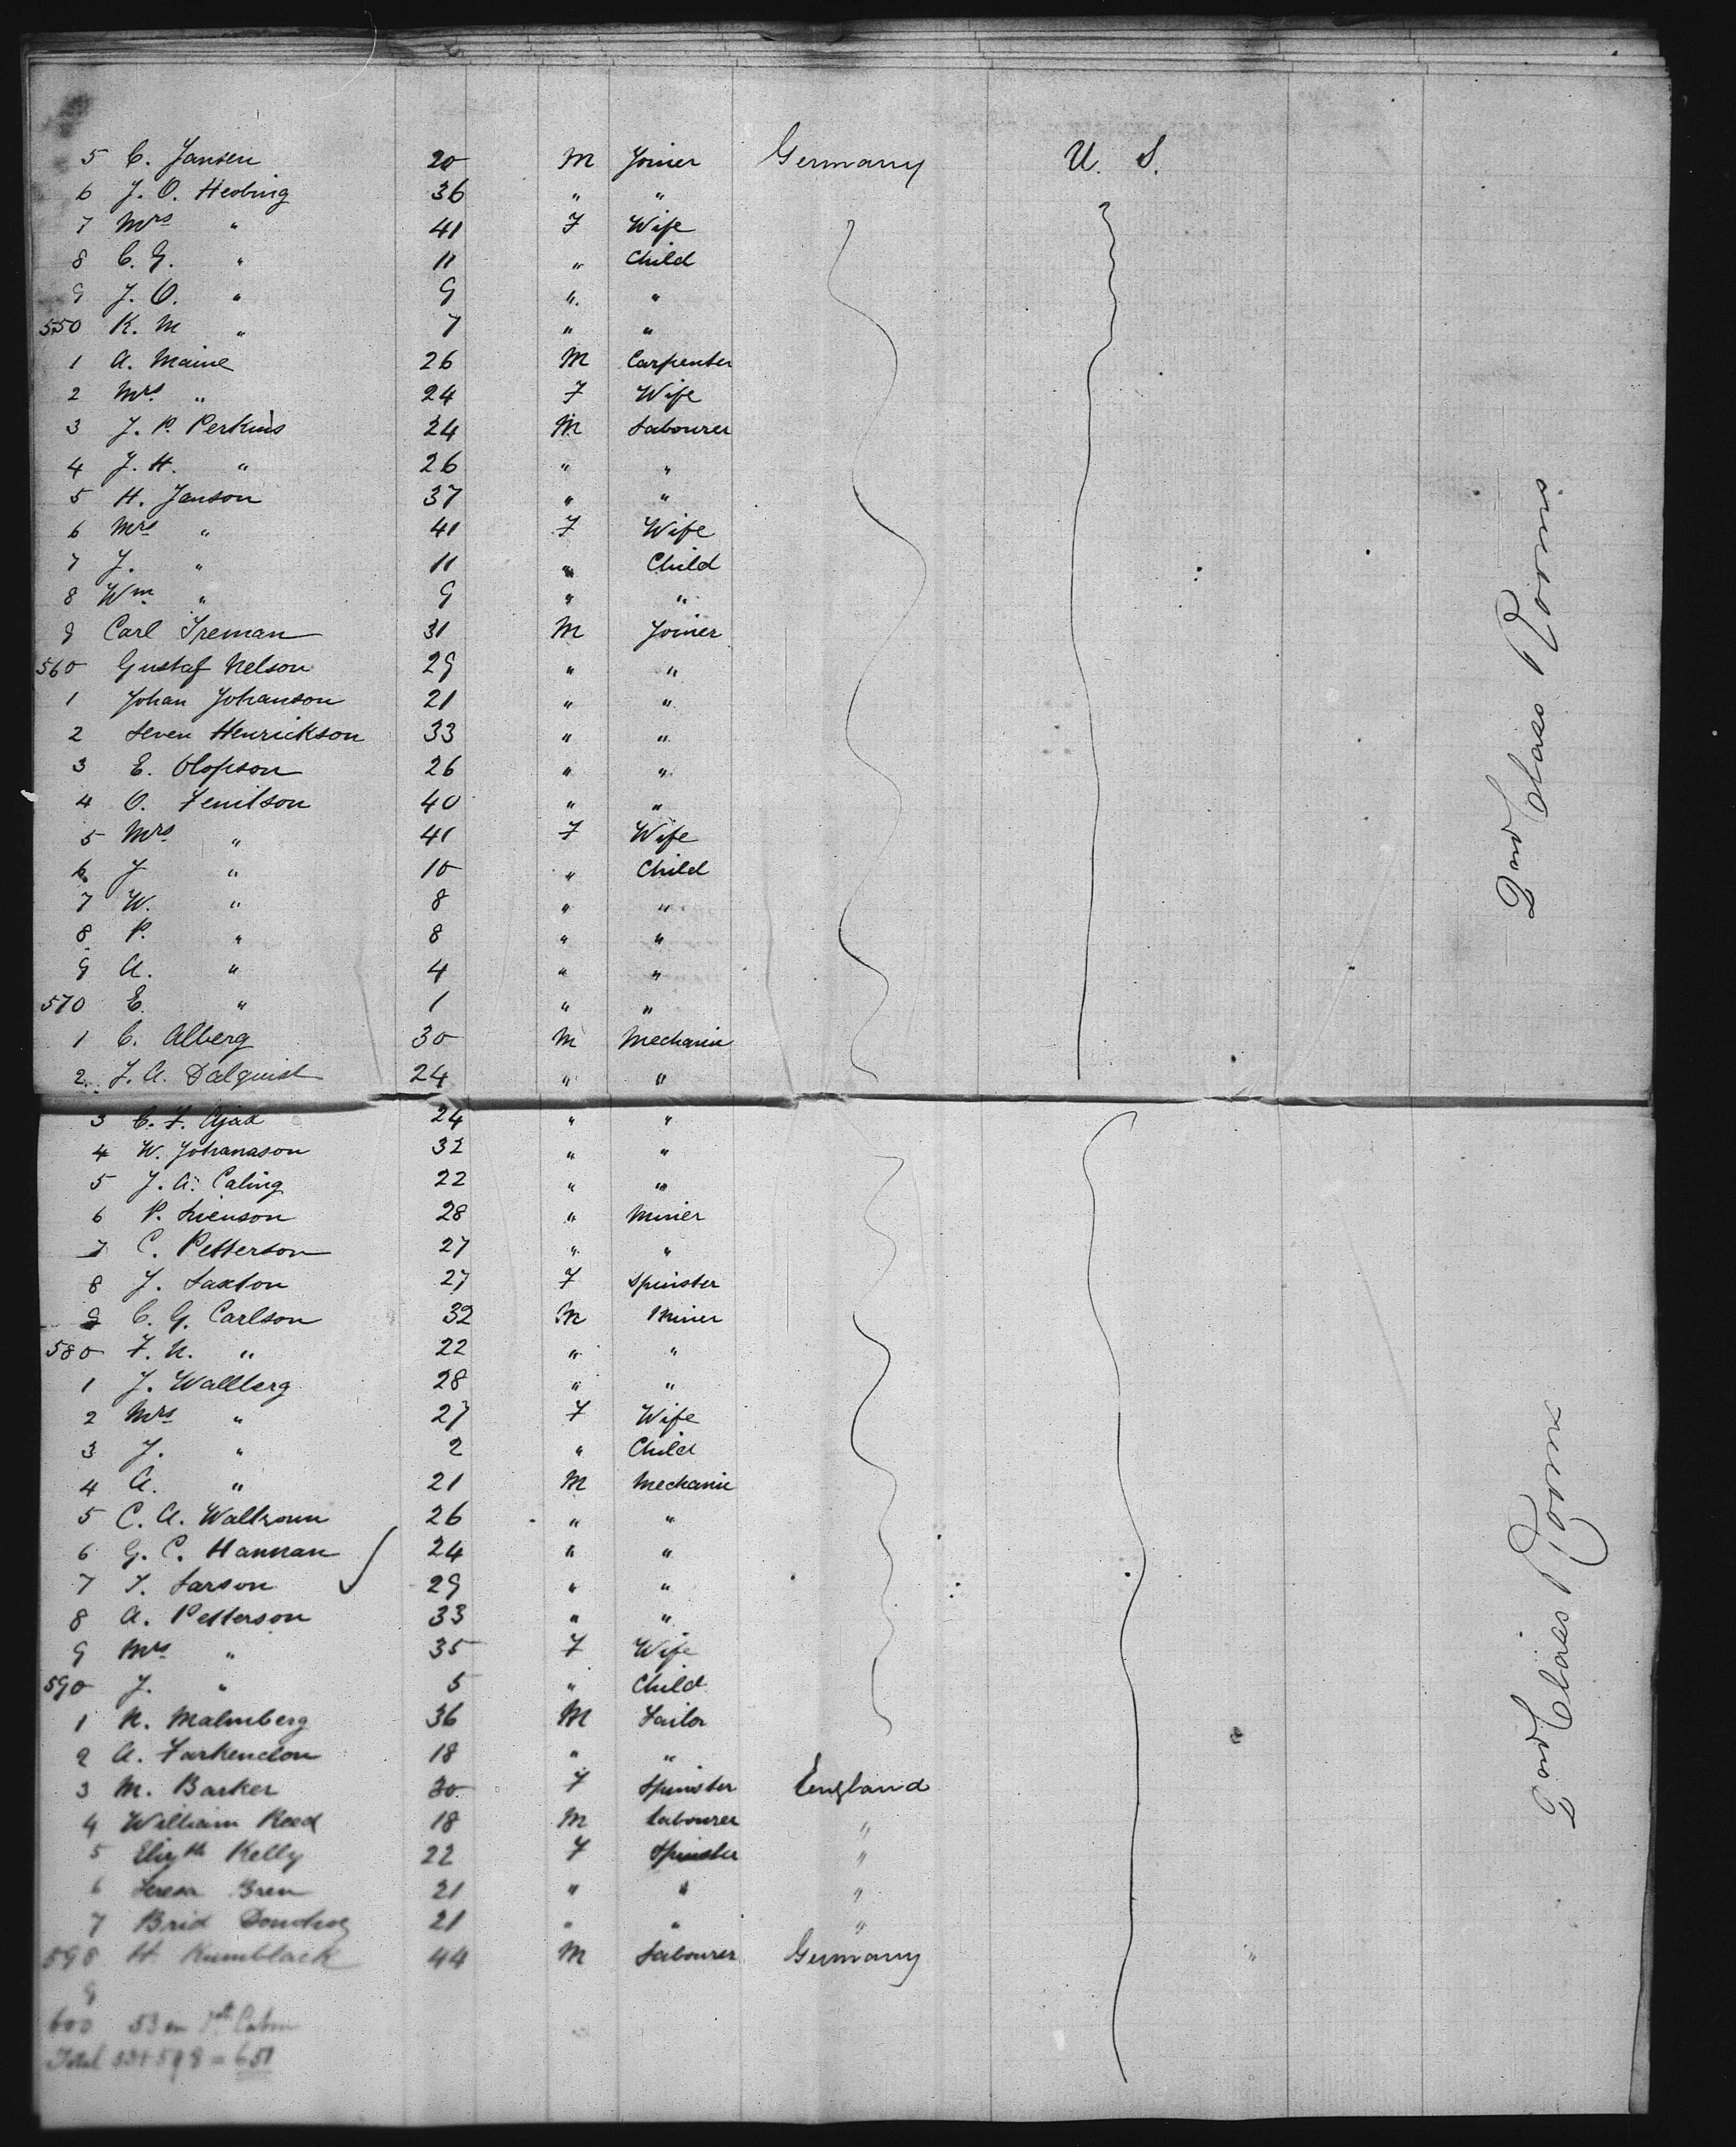 5 C. Jansen 20 M Joiner Germany U. S.
6 J. O. Hedbring 36 " "
7 Mrs " 41 F Wife
8 C. G. " 11 " Child
9 J. O. " 9 " "
550 K. M " 7 " "
1 A. Maine 26 M Carpenter
2 Mrs " 24 F Wife
3 J. P. Perkins 24 M Labourer
4 J. H. " 26 " "
5 H. Janson 37 " "
6 Mrs " 41 F Wife
7 J. " 11 " Child
8 Wm " 9 " "
9 Carl Freman 31 M Joiner
560 Gustaf Nelson 29 " "
1 Johan Johanson 21 " "
2 Seven Henrickson 33 " "
3 E. Olofson 26 " "
4 O. 40 " "
5 Mrs " 41 F Wife
6 J " 10 " Child
7 W. " 8 " "
8 P. " 8 " "
9 A. " 4 " "
570 E. " 1 " "
1 C. Alberg 30 M Mechanic
2 J. A. Dalquist 24 " "
3 C. F. 24 " "
4 W. Johanason 32 " "
5 J. A. Caling 22 " "
6 P. 28 " Miner
7 C. Petterson 27 " "
8 J. Saxton 27 F Spinster
9 C. G. Carlson 32 M Miner
580 F. N. " 22 " "
1 J. Wallberg 28 " "
2 Mrs " 27 F Wife
3 J. " 2 " Child
4 A. " 21 M Mechanic
5 C. A. 26 " "
6 G. C. Hannan 24 " "
7 T. Larson 29 " "
8 A. Petterson 33 " "
9 Mrs " 35 F Wife
590 J. " 5 " Child
1 N. Malmberg 36 M Tailor
2 A. 18 " "
3 M. Barker 30 F Spinster England
4 William Reed 18 M Labourer "
5 Elizth Kelly 22 F Spinster "
6 Teresa Bren 21 " " "
7 Brid Donohoe 21 " " "
598 H. Kumblack 44 M Labourer Germany
9
600 53 in 1st Cabin
Total 53+598 = 651
2nd Class Rooms
2nd Class Rooms